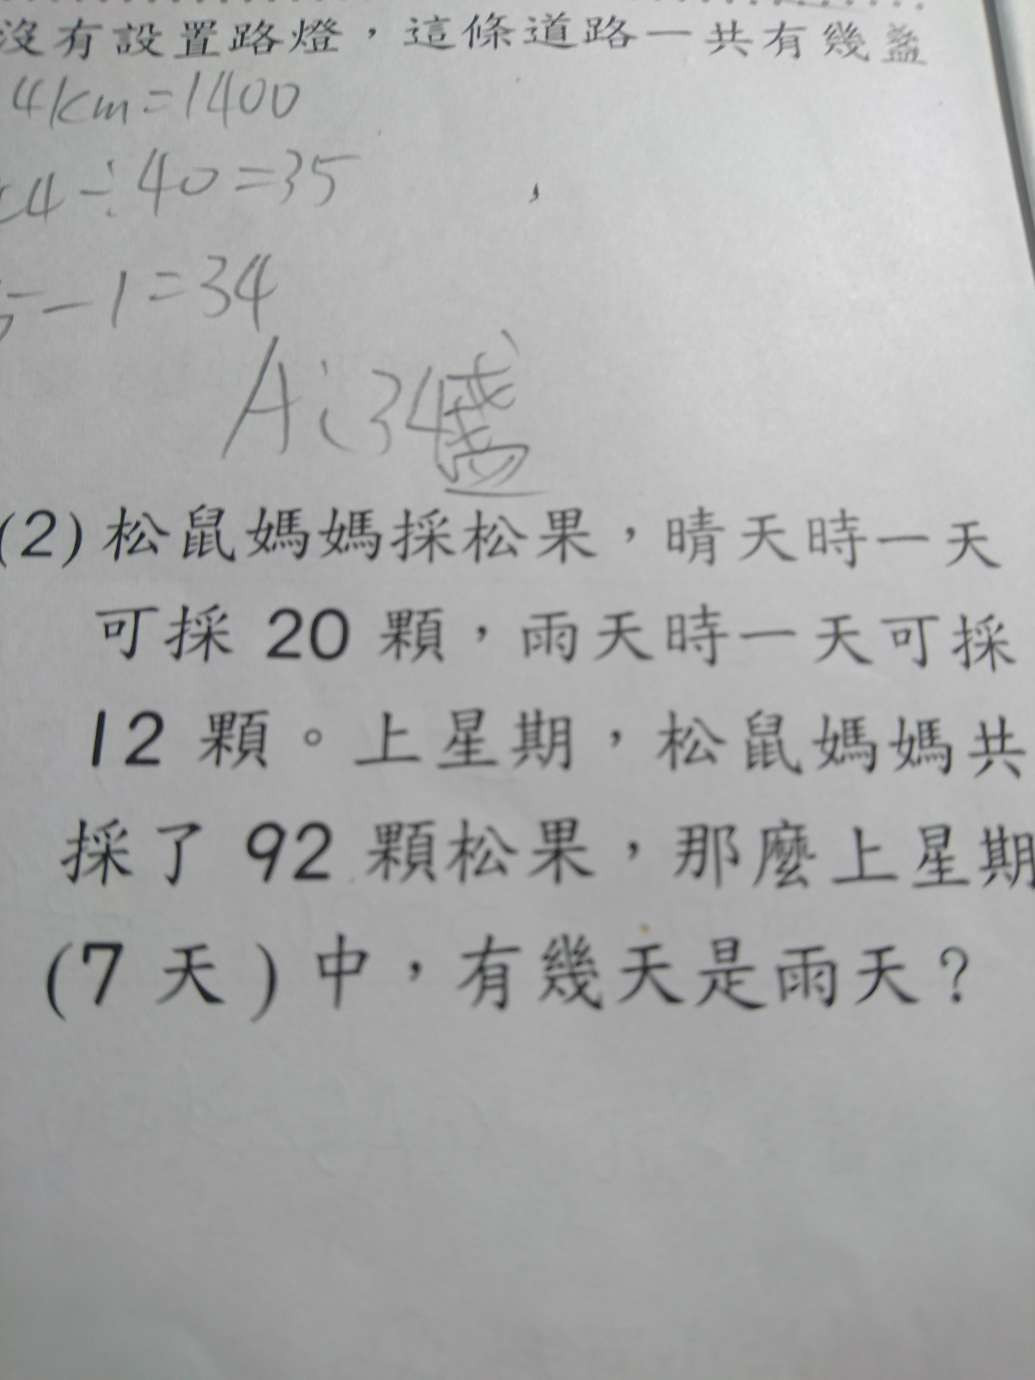 沒有設置路燈，這條道路一共有幾盞
4km=1400
÷40=35
-1=34
A:34盞
(2)松鼠媽媽採松果，晴天時一天
可採 20 顆，雨天時一天可採
12 顆。上星期，松鼠媽媽共
採了 92 顆松果，那麼上星期
(7 天)中，有幾天是雨天？